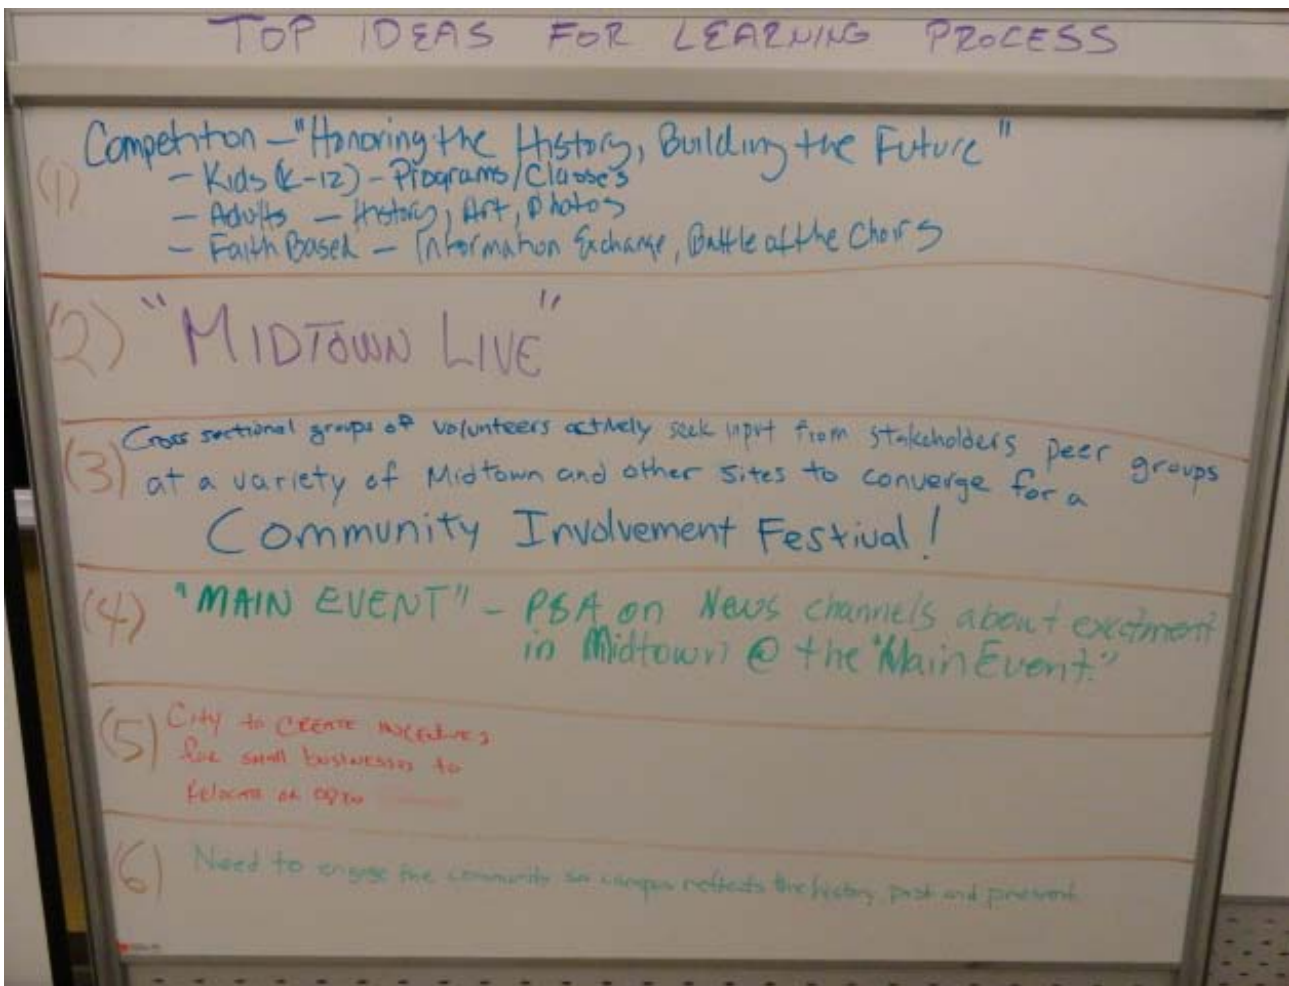 TOP IDEAS FOR LEARNING PROCESS
(1) Competition – "Honoring the History, Building the Future"
– Kids (K-12) – Programs/Classes
– Adults – History, Art, Photos
– Faith Based – Information Exchange, Battle of the Choirs
(2) "MIDTOWN LIVE"
(3) Cross sectional groups of volunteers actively seek input from stakeholders peer groups
at a variety of Midtown and other sites to converge for a
Community Involvement Festival!
(4) "MAIN EVENT" – PSA on News channels about excitment
in Midtown @ the "Main Event."
(5) City to CREATE INCENTIVES
for small businesses to
Relocate or open
(6) Need to engage the community so campus reflects the history, past and present.